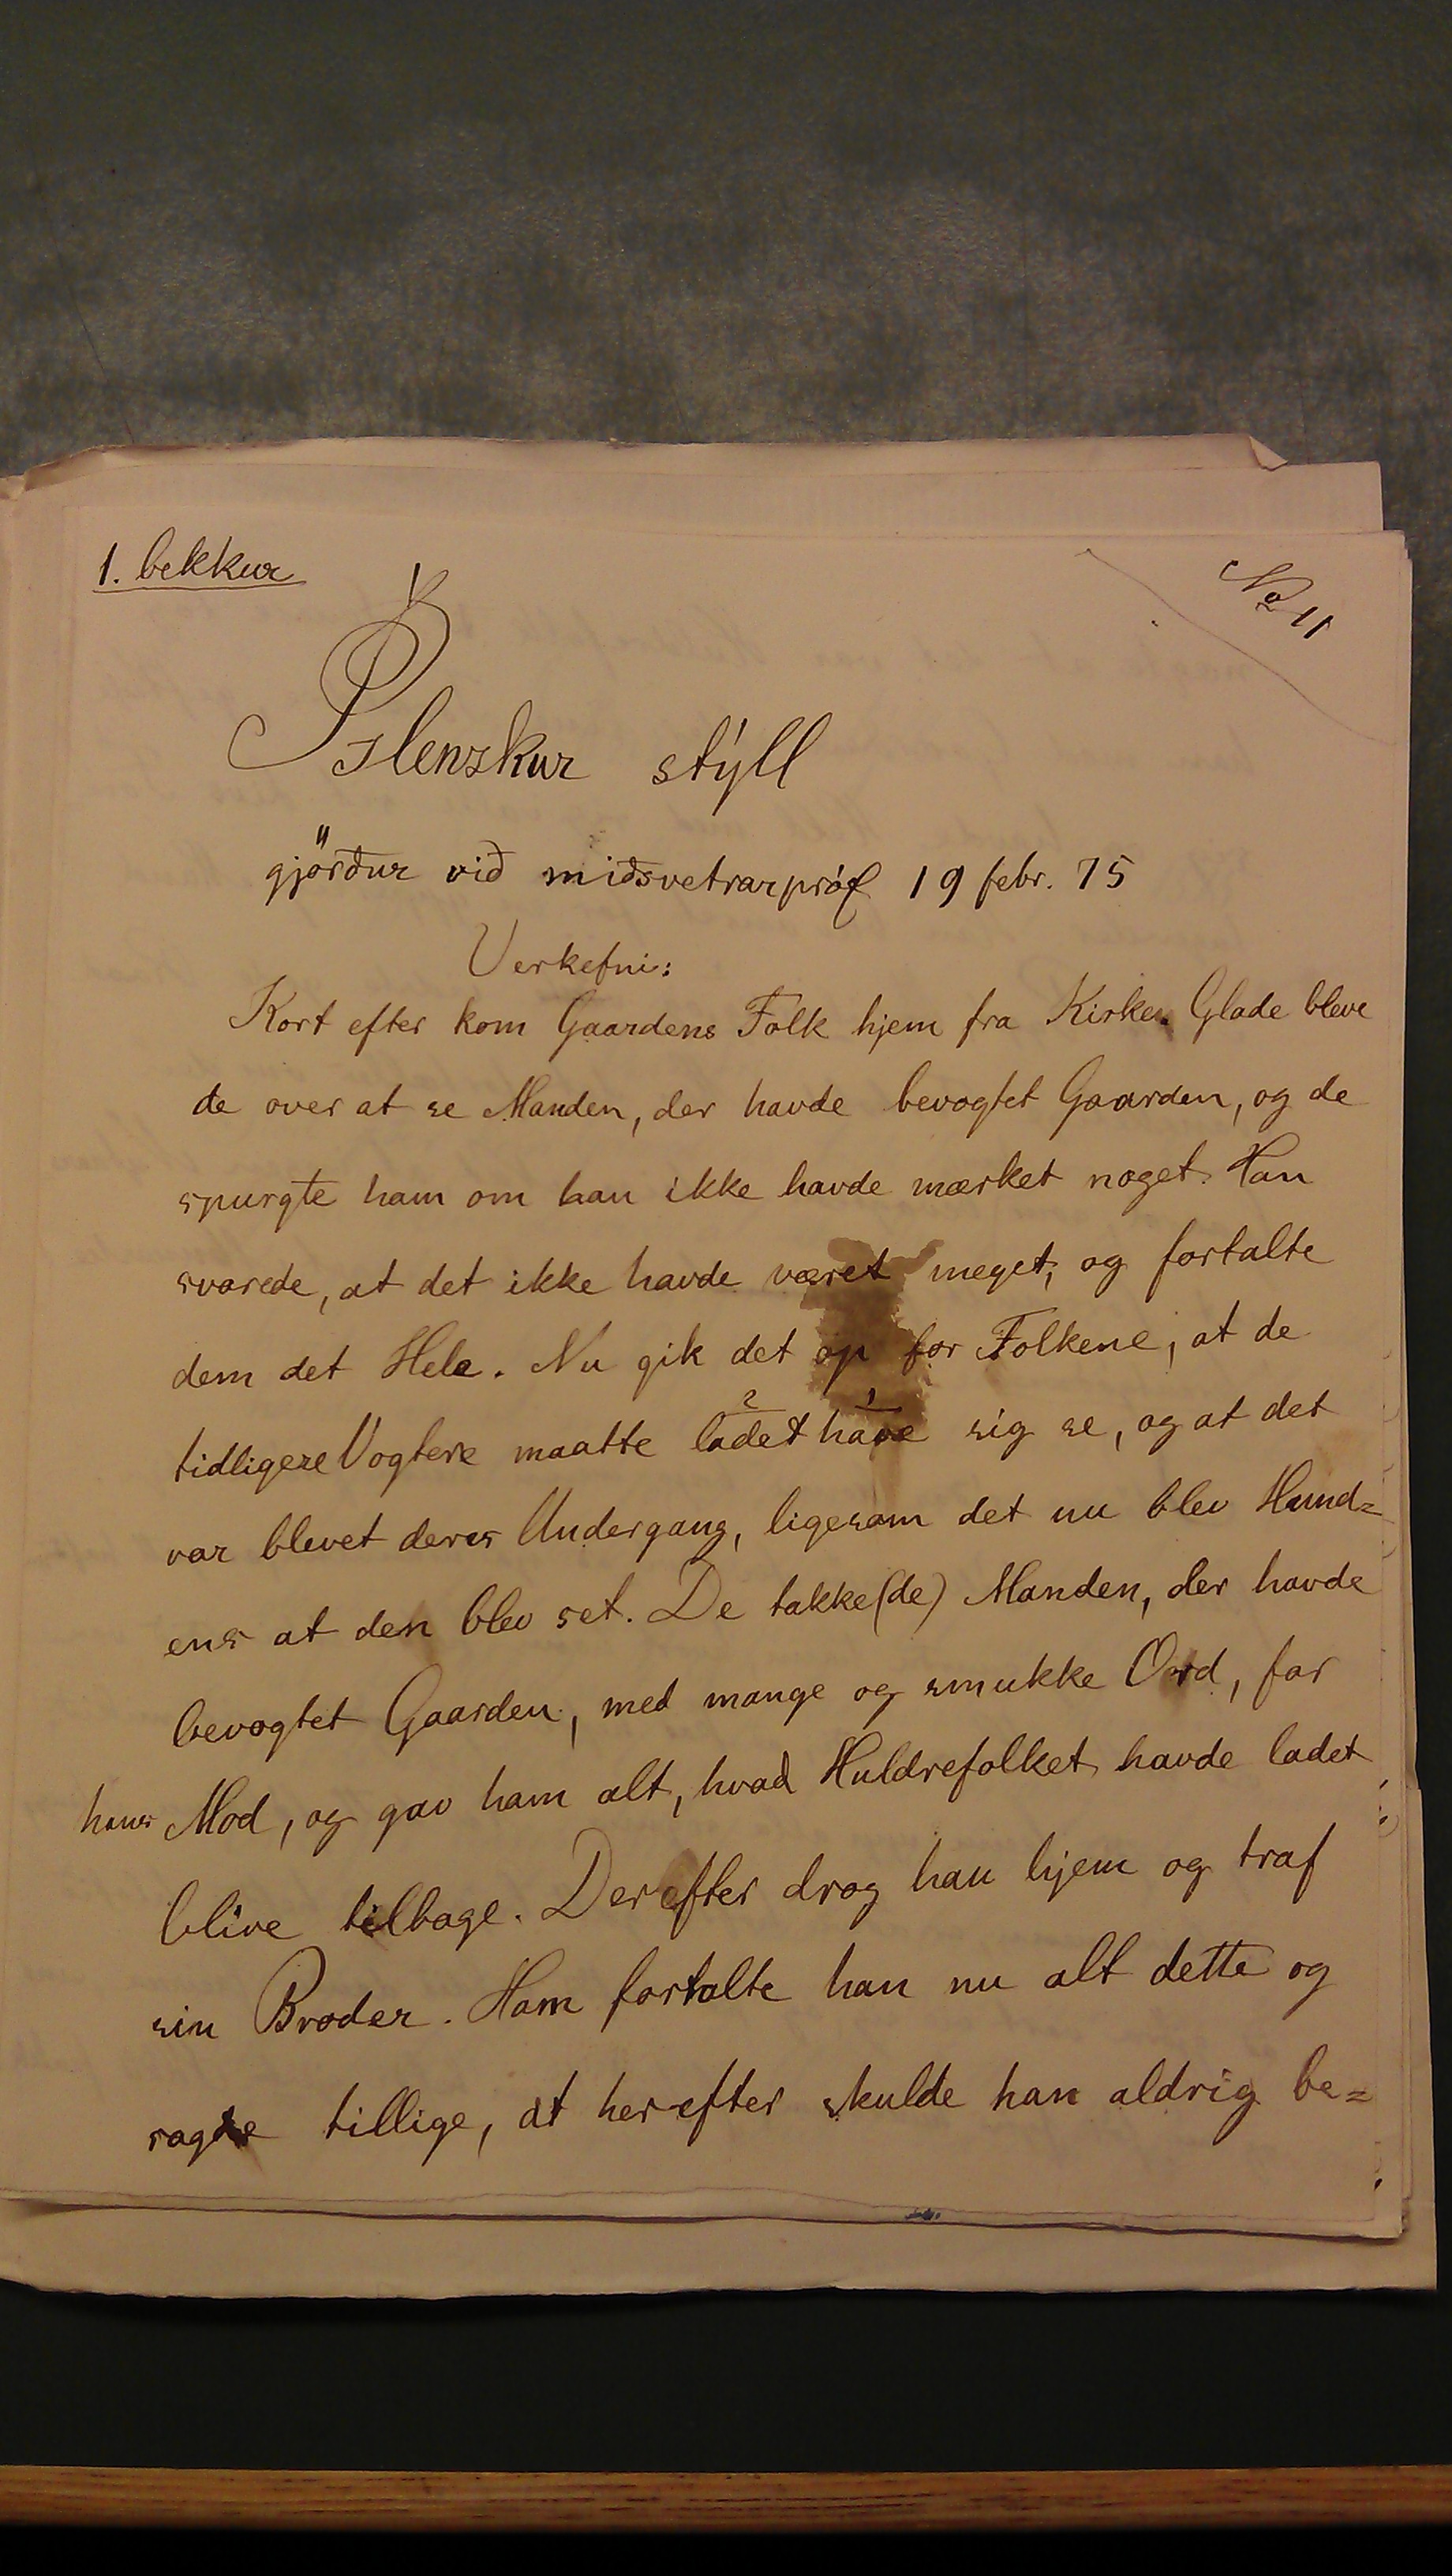 1. bekkur
No 11
Íslenzkur stýll
gjörður við miðsvetrarpróf 19 febr. 75
Verkefni:
Kort efter kom Gaardens Folk hjem fra Kirken. Glade bleve
de over at se Manden, der havde bevogtet Gaarden, og de
spurgte ham om han ikke havde mærket noget. Han
svarede, at det ikke havde været meget; og fortalte
dem det Hele. Nu gik det op for Folkene, at de
2 1
tidligere Vogtere maatte ladet have sig se, og at det
var blevet deres Undergang, ligesom det nu blev Hund=
ens at den blev set. De takke(de) Manden, der havde
bevogtet Gaarden, med mange og smukke Ord, for
hans Mod, og gav ham alt, hvad Huldrefolket havde ladet
blive tilbage. Derefter drog han hjem og traf
sin Broder. Ham fortalte han nu alt dette og
sagde tillige, at herefter skulde han aldrig be=